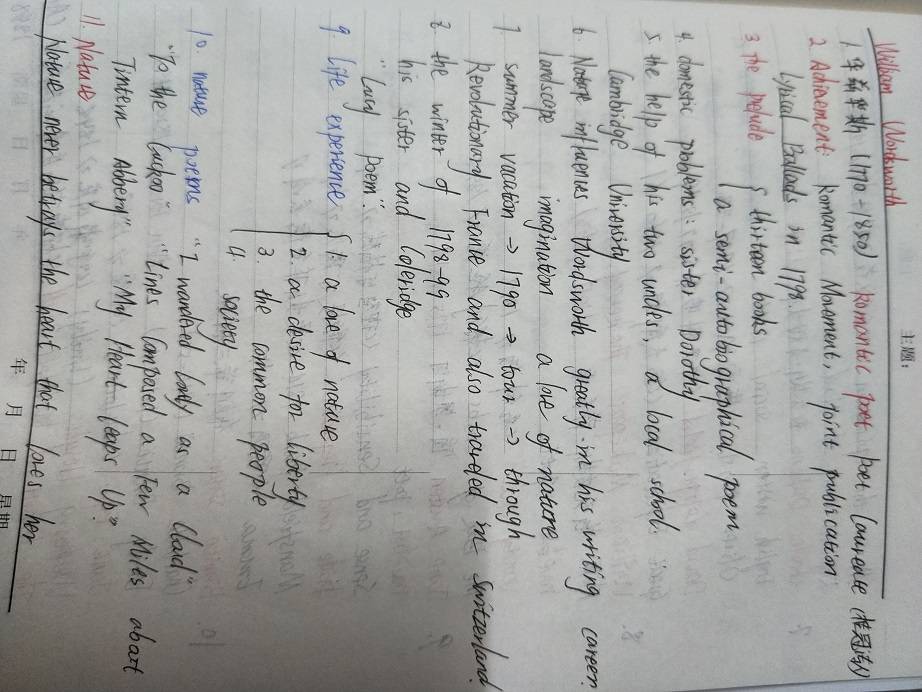 主题:
William Wordsworth
1. 华兹华斯 (1770-1850) Romantic poet poet laureate (桂冠诗人)
2. Achievement: Romantic Movement, joint publication
Lyrical Ballads in 1798.
3. the perlude { thirteen books
a semi-autobiographical poem
4. domestic problems: sister Dorothy
5. the help of his two uncles, a local school.
Cambridge University
6. Nature influences Wordsworth greatly in his writing career.
landscape imagination a love of nature
7. summer vacation → 1790 → tour → through
Revolutionary France and also traveled in Switzerland.
8. the winter of 1798-99
his sister and Coleridge
"Lucy poem".
9 life experience { 1. a love of nature
2. a desire for liberty
3. the common people
4. society
10. nature poems "I wandered lonely as a Cloud"
"To the Cuckoo" "Lines Composed a Few Miles abart
Tintern Abbey" "My Heart Leaps Up".
11. Nature
Nature never betrays the heart that loves her
年 月 日 星期